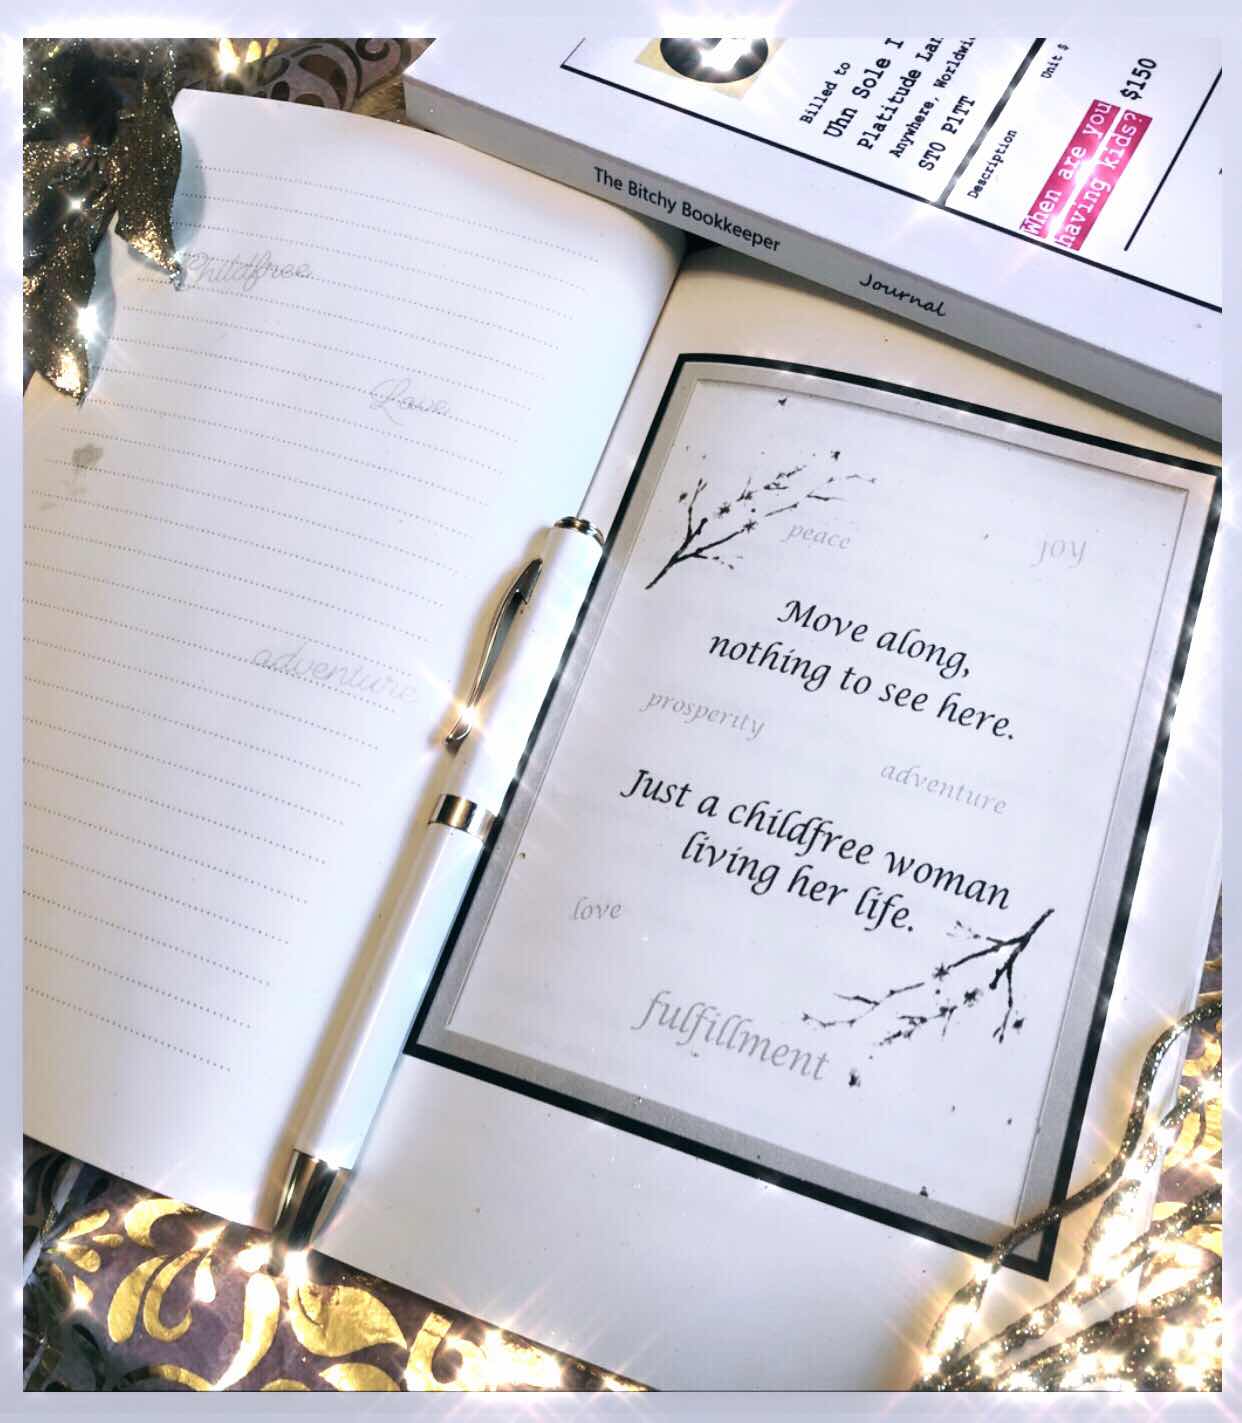 Billed to
Uhn Sole I
Platitude Lan
Anywhere, Worldwi
STO P1TT
Unit $
Description
When are you
having kids?
$150
The Bitchy Bookkeeper
Journal
Childfree
Love
adventure
peace
joy
Move along,
nothing to see here.
prosperity
adventure
Just a childfree woman
living her life.
love
fulfillment